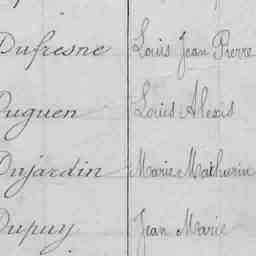 Dufresne Louis Jean Pierre
Duguen Louis Alexis
Dujardin Marie Mathurin
Dupuy Jean Marie